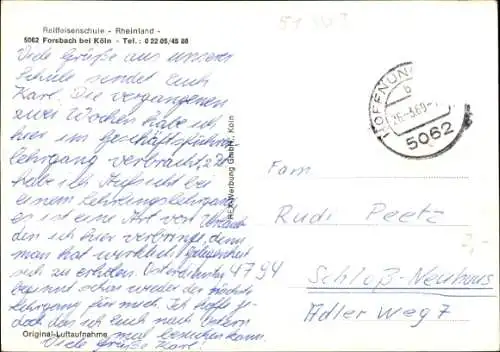 Raiffeisenschule - Rheinland -
5062 Forsbach bei Köln - Tel.: 0 22 05/45 86
Viele Grüße aus unserer
Schule sendet Euch
Karl. Die vergangenen
zwei Wochen habe ich
hier im Geschäftsführer-
lehrgang verbracht,
habe ich Aufsicht bei
einem
es ist eine Art von Urlaub
den ich hier verbringe, denn
man hat wirklich Gelegenheit
sich zu erholen.
beginnt schon wieder der nächste
Lehrgang für mich. Ich hoffe je-
doch das ich Euch nach Ostern
mal besuchen kann.
Viele Grüße Karl.
Original-Luftaufnahme
REX-Werbung GmbH., Köln
51 503
HOFFNUNG
b
26.-3.69-
5062
Fam
Rudi Peetz
3,-
4794
Schloß-Neuhaus
Adlerweg 7